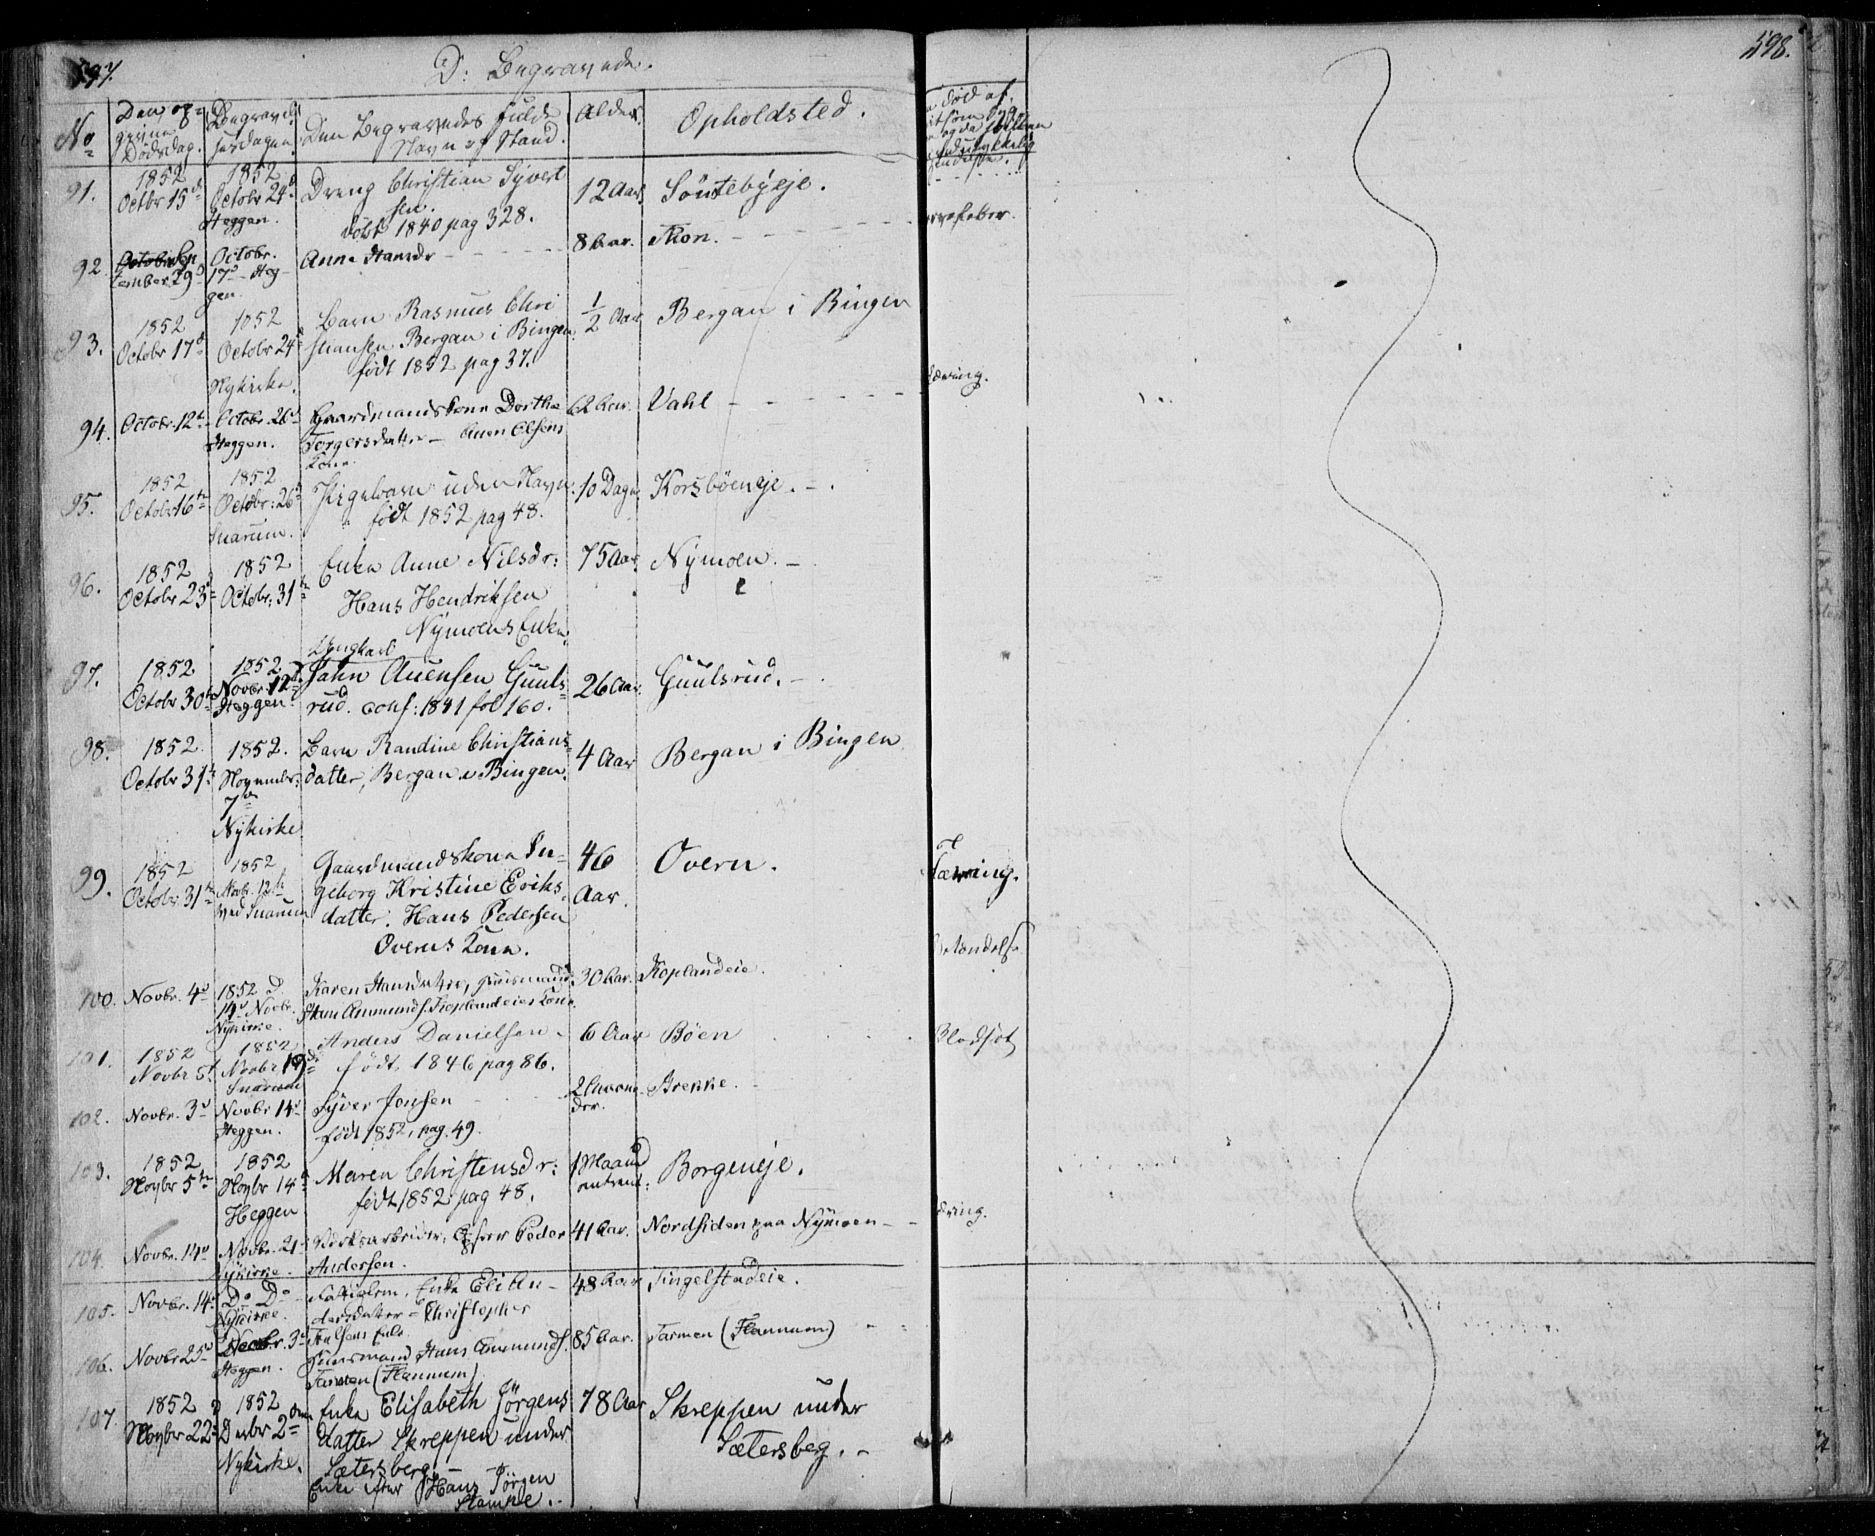 597.
D: Begravede.
598.
No
Den op-
givne
Dødsdag.
Begravel-
sesdagen.
Den Begravedes fulde
Navn og Stand.
Alder.
Opholdsted.
død af
91.
1852
Octbr 15d
1852
Octobr 24d
Heggen.
Dreng Christian Syvert
sen.
døbt 1840 pag 328.
12 Aar
Söntebyeje.
92.
Sep
tember 29d
Octobr.
17d Heg-
gen.
Anne Hansdr
8 Aar.
Thon.
93.
1852
Octobr 17d
1852
Octobr 24d
Nykirke.
Barn Rasmus Chri
stiansen Bergan i Bingen
født 1852 pag 37.
1/2 Aar
Bergan i Bingen
94.
Octobr. 12t
Octobr. 26d
Heggen.
Gaardmandskone Dorthe
Torgersdatter – Auen Olsens
Kone.
62 Aar.
Vahl
95.
1852
Octobr 16te
1852
Octobr: 26d
Snarum.
Pigebarn uden Navn
født 1852 pag 48.
10 Dage
Korsbøeneje.
96.
1852
Octobr 23d
1852
Octobr: 31te
Enke Anne Nilsdr:
Hans Hendriksen
Nymoens Enke
75 Aar.
Nymoen.
97.
1852
Octobr 30te
1852
Novbr. 12te
Heggen
Ungkarl
Jahn Auensen Guuls-
rud. conf: 1841 fol 160.
26 Aar.
Guulsrud.
98.
1852
Octobr 31te
1852.
Novembr:
7de
Nykirke
Barn Randine Christians-
datter, Bergan i Bingen.
4 Aar
Bergan i Bingen
99.
1852
Octobr. 31te
1852
Novbr. 12te
ved Snarum
Gaardmandskone In-
geborg Kristine Eriks-
datter. Hans Pedersen
Overns Kone.
46
Aar.
Overn.
100.
Novbr. 4d
1852 d.
14d Novbr.
Nykirke.
Karen Hansdatter, Huusmand
Hans Ammunds. Koplandeies Kone
30 Aar.
Koplandeie.
101.
1852
Novbr 5t
1852
Novbr 19de
Snarum
Anders Danielsen
født 1846 pag 86.
6 Aar
Bøen
Blodsot
102.
Novbr. 3d
Novbr 14d
Heggen.
Syver Jonsen
født 1852, pag. 49.
Brekke.
103.
1852
Novbr 5te
1852
Novbr 14d
Heggen
Maren Christensdr:
født 1852 pag 48.
1 Maaned
omtrent:
Borgeneje.
104.
Novbr. 14d
Novbr. 21d
Nykirke.
Peder
Andersen.
41 Aar.
Nordsiden paa Nymoen
105.
Novbr. 14d
Do Do
Nykirke.
Enke Eli An-
dersdatter – Christopher
48 Aar
Tingelstadeie.
106.
Novbr 25d
Decbr. 3d
Heggen.
Huusmand Hans Ammunds.
Tarmen (Flannum)
85 Aar.
Tarmen (Flannum)
107.
1852
Novbr 22d
1852
Decbr 2den
Nykirke.
Enke Elisabeth Jørgens
datter Skreppen under
Sætersberg.
Enke efter Hans Jörgen
Stampe.
78 Aar
Skreppen under
Sætersberg.